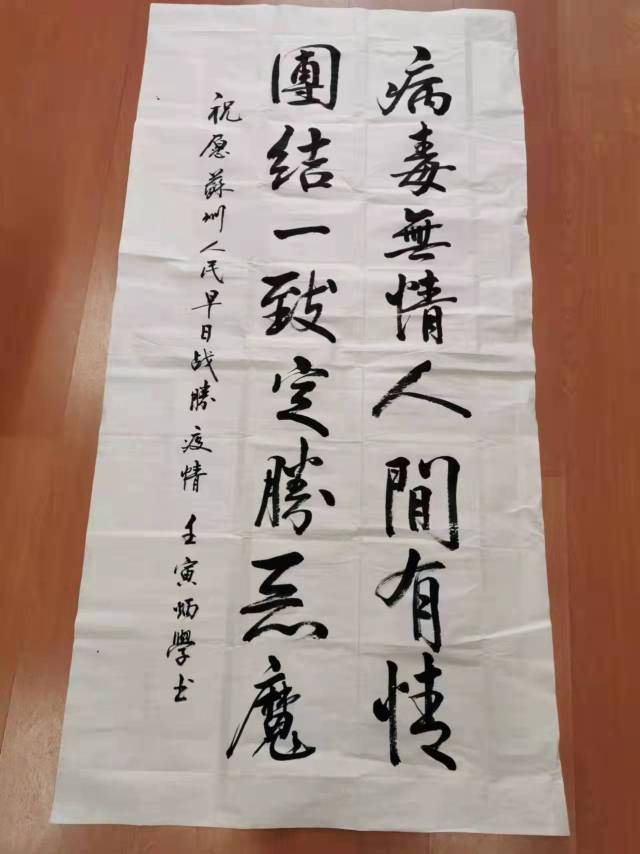 病毒無情人間有情
團結一致定勝惡魔
祝愿蘇州人民早日战勝疫情 壬寅炳學书